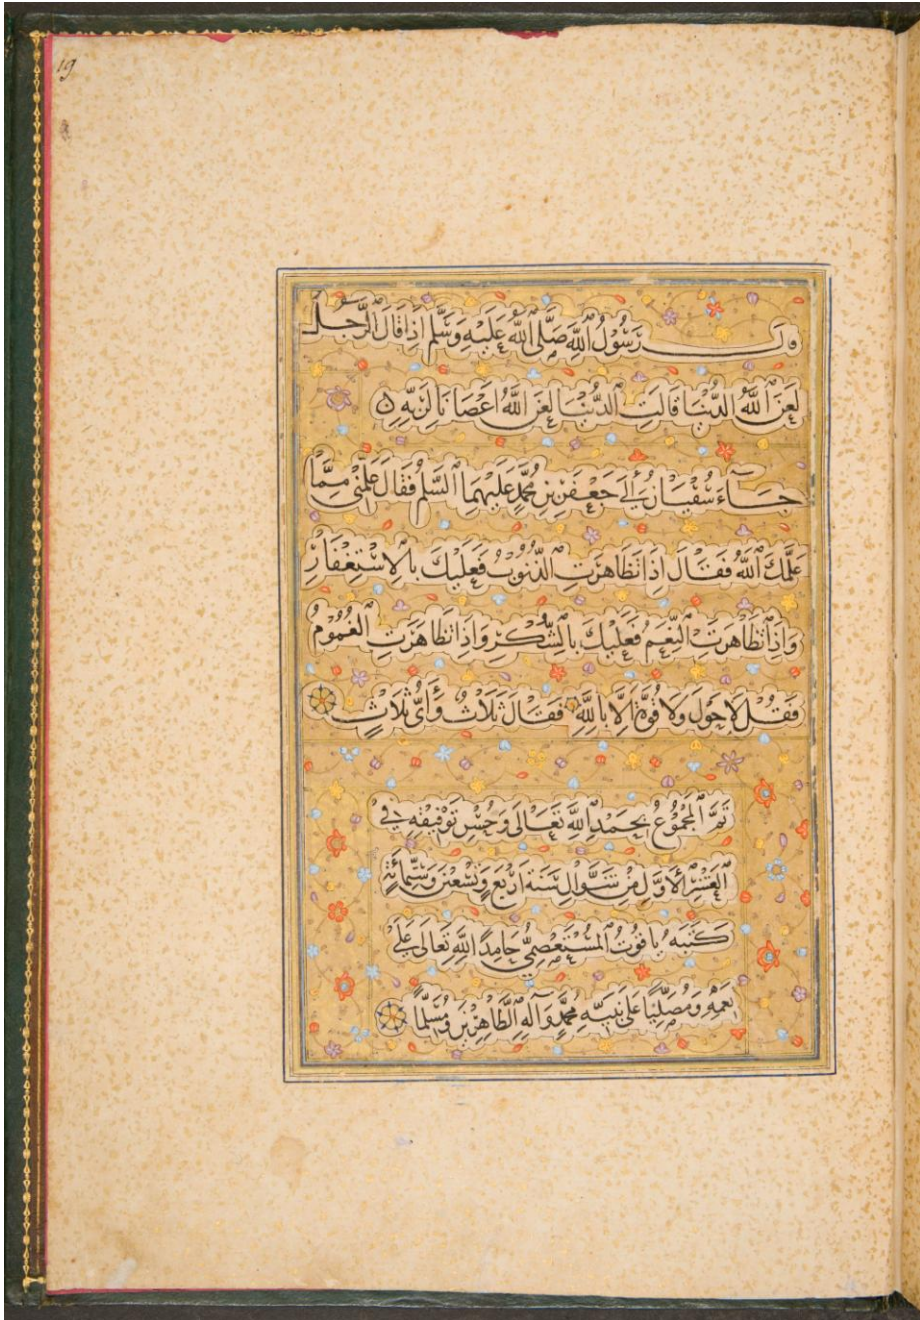 19
قال رَسُولُ اللهِ صَلَّى اللهُ عَلَيْهِ وَسَلَّم اِذَا قَالَ الرَّجُلُ
لَعَنَ اللهُ الدُّنْيَا قَالَتِ الدُّنْيَا لَعَنَ اللهُ اَعْصَانَا لِرَبِّهِ
جَاءَ سُفْيَانُ اِلَى جَعْفَرِ بْنِ مُحَمَّدٍ عَلَيْهِمَا السَّلٰمُ فَقَالَ عَلِّمْنِي مِمَّا
عَلَّمَكَ اللهُ فَقَالَ اِذَا تَظَاهَرَتِ الذُّنُوبُ فَعَلَيْكَ بِالاِسْتِغْفَارِ
وَاِذَا تَظَاهَرَتِ النِّعَمُ فَعَلَيْكَ بِالشُّكْرِ وَاِذَا تَظَاهَرَتِ الغُمُومُ
فَقُلْ لاَ حَوْلَ وَلاَ قُوَّةَ اِلَّا بِاللهِ فَقَالَ ثَلَاثٌ وَاَيُّ ثَلَاثٍ
تَمَّ المَجْمُوعُ بِحَمْدِ اللهِ تَعَالَى وَحُسْنِ تَوْفِيقِهِ فِي
العَشْرِ الاَوَّلِ مِنْ شَوَّالِ سَنَةَ اَرْبَعَ وَتِسْعِينَ وَسِتِّمِائَةٍ
كَتَبَهُ يَاقُوتُ المُسْتَعْصِمِيُّ حَامِدًا لِلّهِ تَعَالَى عَلَى
نِعَمِهِ وَمُصَلِّيًا عَلَى نَبِيِّهِ مُحَمَّدٍ وَآلِهِ الطَّاهِرِينَ وَمُسَلِّمًا